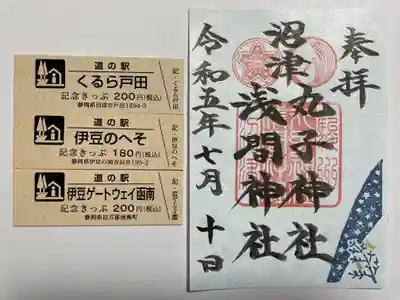 道の駅
くるら戸田
記念きっぷ 200円(税込)
静岡県沼津市戸田1294-3
記・くるら戸田
道の駅
伊豆のへそ
記念きっぷ 180円(税込)
静岡県伊豆の国市田京195-2
記・伊豆のへそ
道の駅
伊豆ゲートウェイ函南
記念きっぷ 200円(税込)
静岡県田方郡函南町
奉拝
沼津
丸子神社
浅間神社
令和五年七月十日